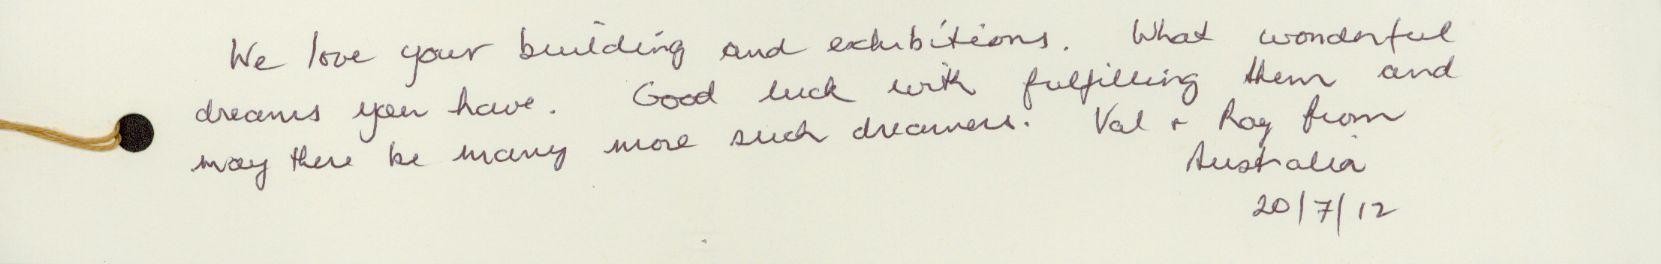 We love your building and exhibitions. What wonderful
dreams you have. Good luck with fulfilling them and
may there be many more such dreamers. Val + Roy from
Australia
20/7/12